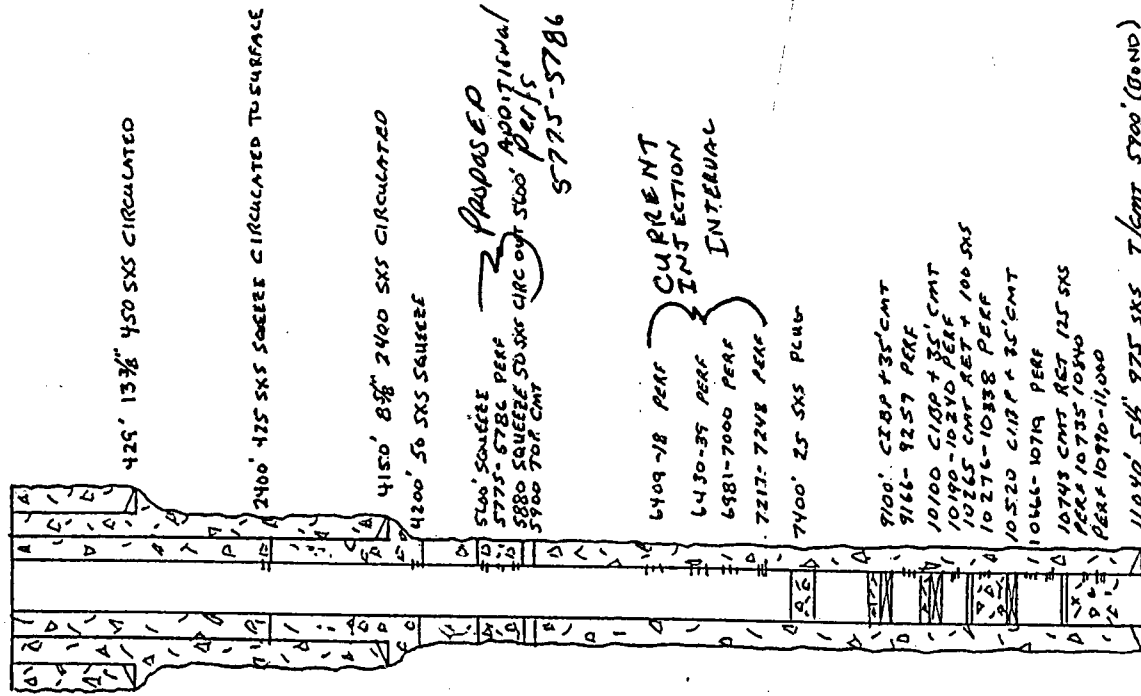 429' 13 3/8" 450 SXS CIRCULATED
2400' 425 SXS SQEEZE CIRCULATED TO SURFACE
4150' 8 5/8" 2400 SXS CIRCULATED
4200' 50 SXS SQUEEZE
5600' SQUEEZE
5775-5786 PERF
5880 SQUEEZE 50 SXS CIRC OUT 5600'
5900 TOP CMT
PROPOSED
ADDITIONAL
Perfs
5775-5786
6409-18 PERF
6430-39 PERF
6981-7000 PERF
7217-7248 PERF
CURRENT
INJECTION
INTERVAL
7400' 25 SXS PLUG
9100' CIBP + 35' CMT
9166-9257 PERF
10100 CIBP + 35' CMT
10190-10240 PERF
10265 CMT RET + 100 SXS
10276-10338 PERF
10520 CIBP + 35' CMT
10666-10719 PERF
10743 CMT RET 125 SXS
PERF 10735-10840
PERF 10970-11,000
11040' 5 1/2" 975 SXS T/CMT 5900' (BOND)